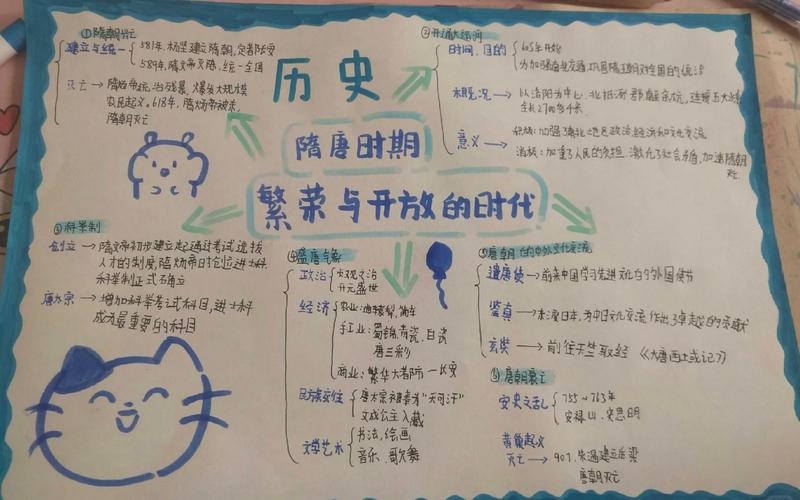 历史
隋唐时期
繁荣与开放的时代
①隋朝兴亡
建立与统一
581年,杨坚建立隋朝,定都长安
589年,隋文帝灭陈,统一全国
灭亡→隋炀帝统治残暴,爆发大规模
农民起义。618年,隋炀帝被杀,
隋朝灭亡
②开通大运河
时间、目的
605年开始
为加强南北交通,巩固隋王朝对全国的统治
概况→以洛阳为中心,北抵涿郡,南至余杭,连接五大
全长2700多千米
意义
积极:加强了南北地区政治,经济和文化交流
消极:加重了人民的负担,激化了社会矛盾,加速隋朝
灭亡
③科举制
创立→隋文帝初步建立起通过考试选拔
人才的制度,隋炀帝时创立进士科,
科举制正式确立
唐太宗→增加科举考试科目,进士科
成为最重要的科目
④盛唐气象
政治
贞观之治
开元盛世
经济
农业:曲辕犁,筒车
手工业:蜀锦,青瓷,白瓷
唐三彩
商业:繁华大都市—长安
民族交往
唐太宗被尊为“天可汗”
文成公主入藏
文学艺术
书法,绘画
音乐,歌舞
⑤唐朝的中外文化交流
遣唐使→前来中国学习先进文化的外国使节
鉴真→东渡日本,为中日文化交流作出了卓越的贡献
玄奘→前往天竺取经《大唐西土或记》
⑥唐朝衰亡
安史之乱
755-763年
安禄山,史思明
黄巢起义
灭亡→907,朱温建立后梁
唐朝灭亡